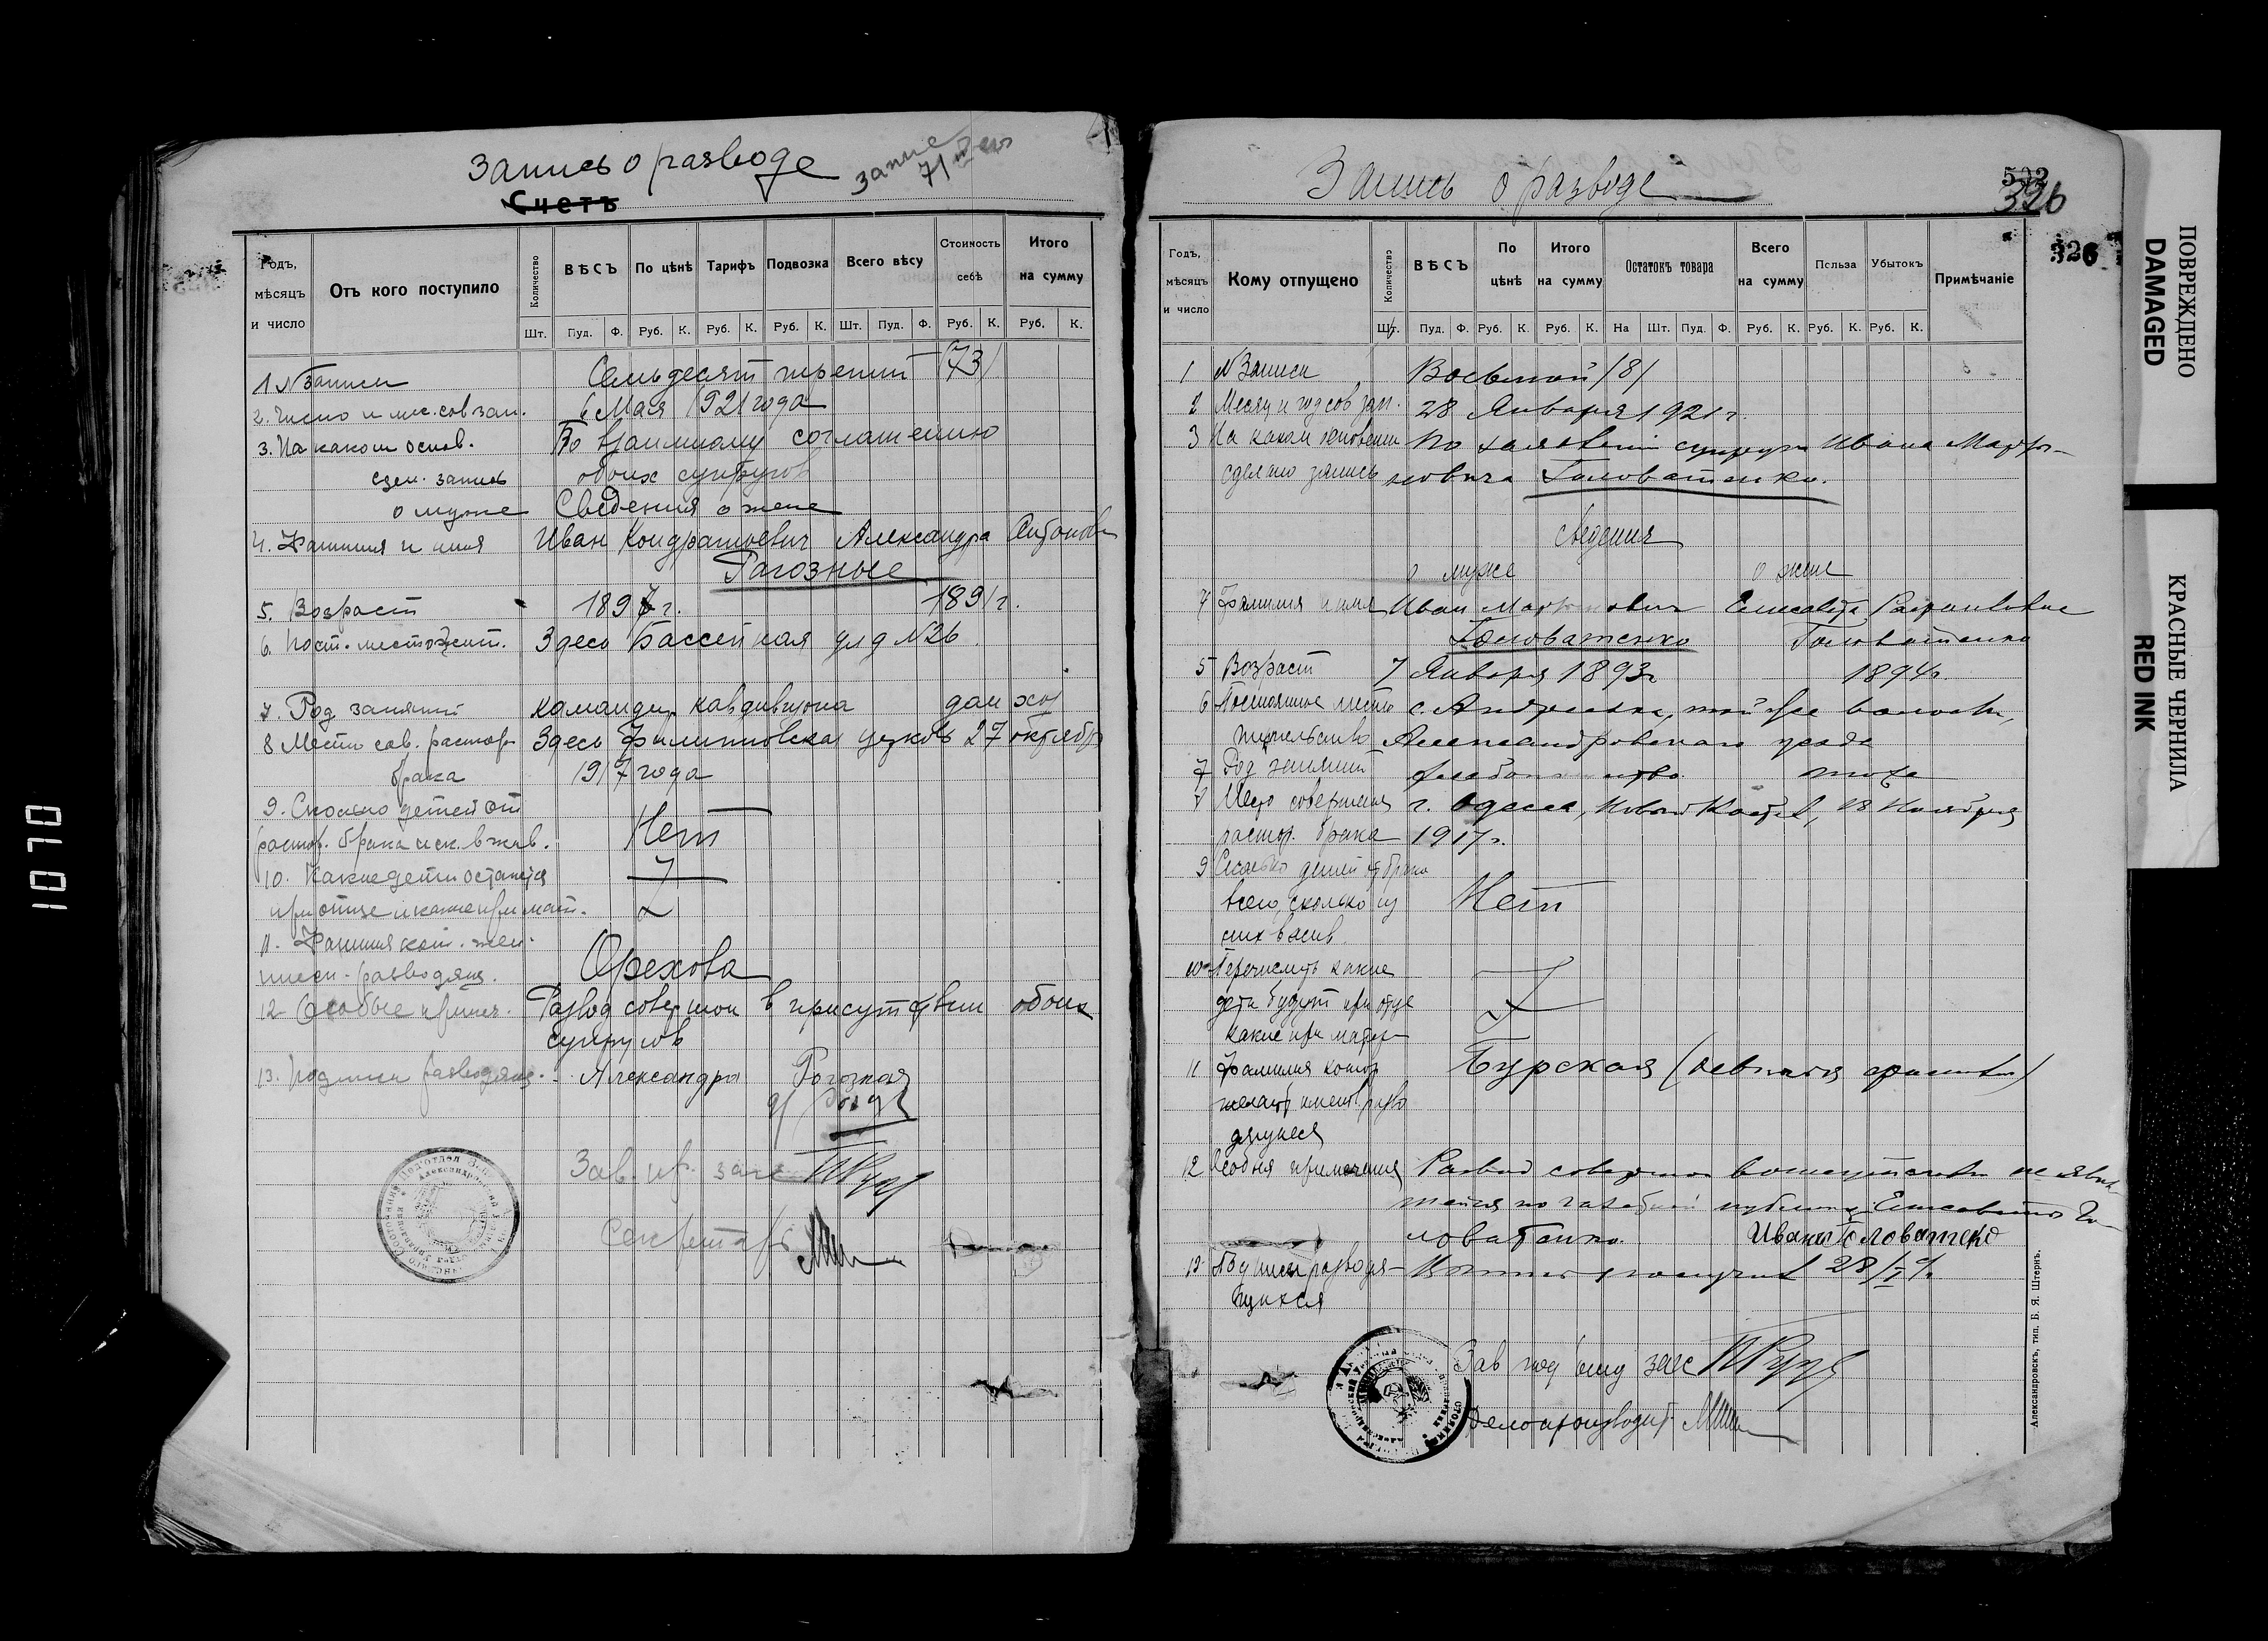 Запись о разводе
Счетъ
Годъ, мѣсяцъ и число
Отъ кого поступило
Количество
ВѢСЪ
По цѣнѣ
Тарифъ
Подвозка
Всего вѣсу
Стоимость себѣ
Итого на сумму
Шт. Пуд. Ф. Руб. К. Руб. К. Руб. К. Шт. Пуд. Ф. Руб. К. Руб. К.
1 N записи Семьдесят третий (73)
2. Число и мес. сов зап. 6 Мая 1921 года
3. На каком основ. По взаимному соглашению
сдел. запись обоих супругов
о муже Сведения о жене
4. Фамилия и имя Иван Кондратьевич Александра
Рагозные
5. Возраст 1897 г. 1891 г.
6. Пост. местожит. Здесь Бассейная ул д N26.
7. Род занятий командир кавдивизиона дом хоз
8 Место сов. растор. Здесь Филипповская церковь 27 октября
брака 1917 года
9. Сколько детей от
растор. брака и ск. в жив. Нет
10. Какие дети остаются
при отце и какие при мат.
11. Фамилия кот.
разводящ. Орехова
12 Особые примеч. Развод совершон в присутствии обоих
супругов
13. Подписи разводящ. Александра Рогозная
Зав.
Секретарь
Запись о разводе
502
326
326
Годъ, мѣсяцъ и число
Кому отпущено
Количество
ВѢСЪ
По цѣнѣ
Итого на сумму
Остатокъ товара
Всего на сумму
Польза
Убытокъ
Примѣчаніе
Шт. Пуд. Ф. Руб. К. Руб. К. На Шт. Пуд. Ф. Руб. К. Руб. К. Руб. К.
1 N Записи Восьмой /8/
2 Месяц и год сов зап. 28 Января 1921 г.
3 На каком основении По заявлению супруга Ивана
сделано запись Головатенко.
Сведения
о муже о жене
Фамилия и имя Иван Елисавета
Головатенко Головатенко
5 Возраст 7 Января 1893 г 1894 г.
6 Постоянное место с. Андреевка, той же волости,
жительство Александровского уезда
7 Род занятий тоже
Место совершения г. Одесса, 18 Ноября
растор. брака 1917 г.
9 Сколько детей от брака
всего, сколько из Нет
них в жив.
10 Перечислить какие
дети будут при отце
какие при матер
11 Фамилия котор Бурская
желают имет разво
дящиеся
12 Особыя примечания Развод совершон
Елисаветы Го-
ловатенко. Иван Головатенко
13 Подписи разводя- 28/I
щихся
Зав под отд загс
Делопроизводит.
Александровскъ, тип. Б. Я. Штернъ.
ПОВРЕЖДЕНО
DAMAGED
КРАСНЫЕ ЧЕРНИЛА
RED INK
1070